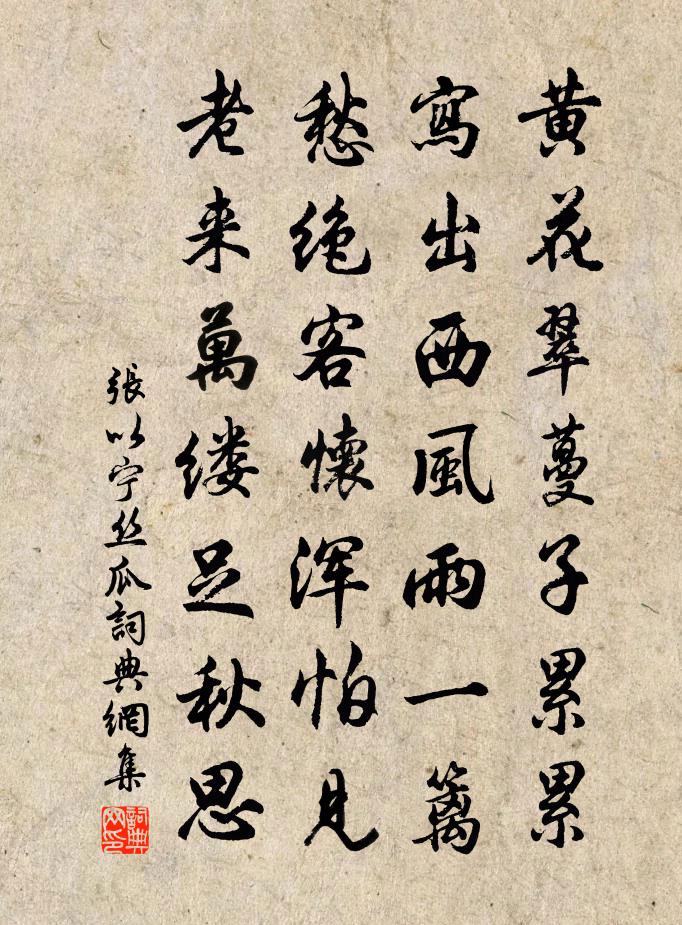 黄花翠蔓子累累
寫出西風雨一籬
愁绝客懷浑怕見
老来萬缕足秋思
張以宁丝瓜詞典網集
詞典网印